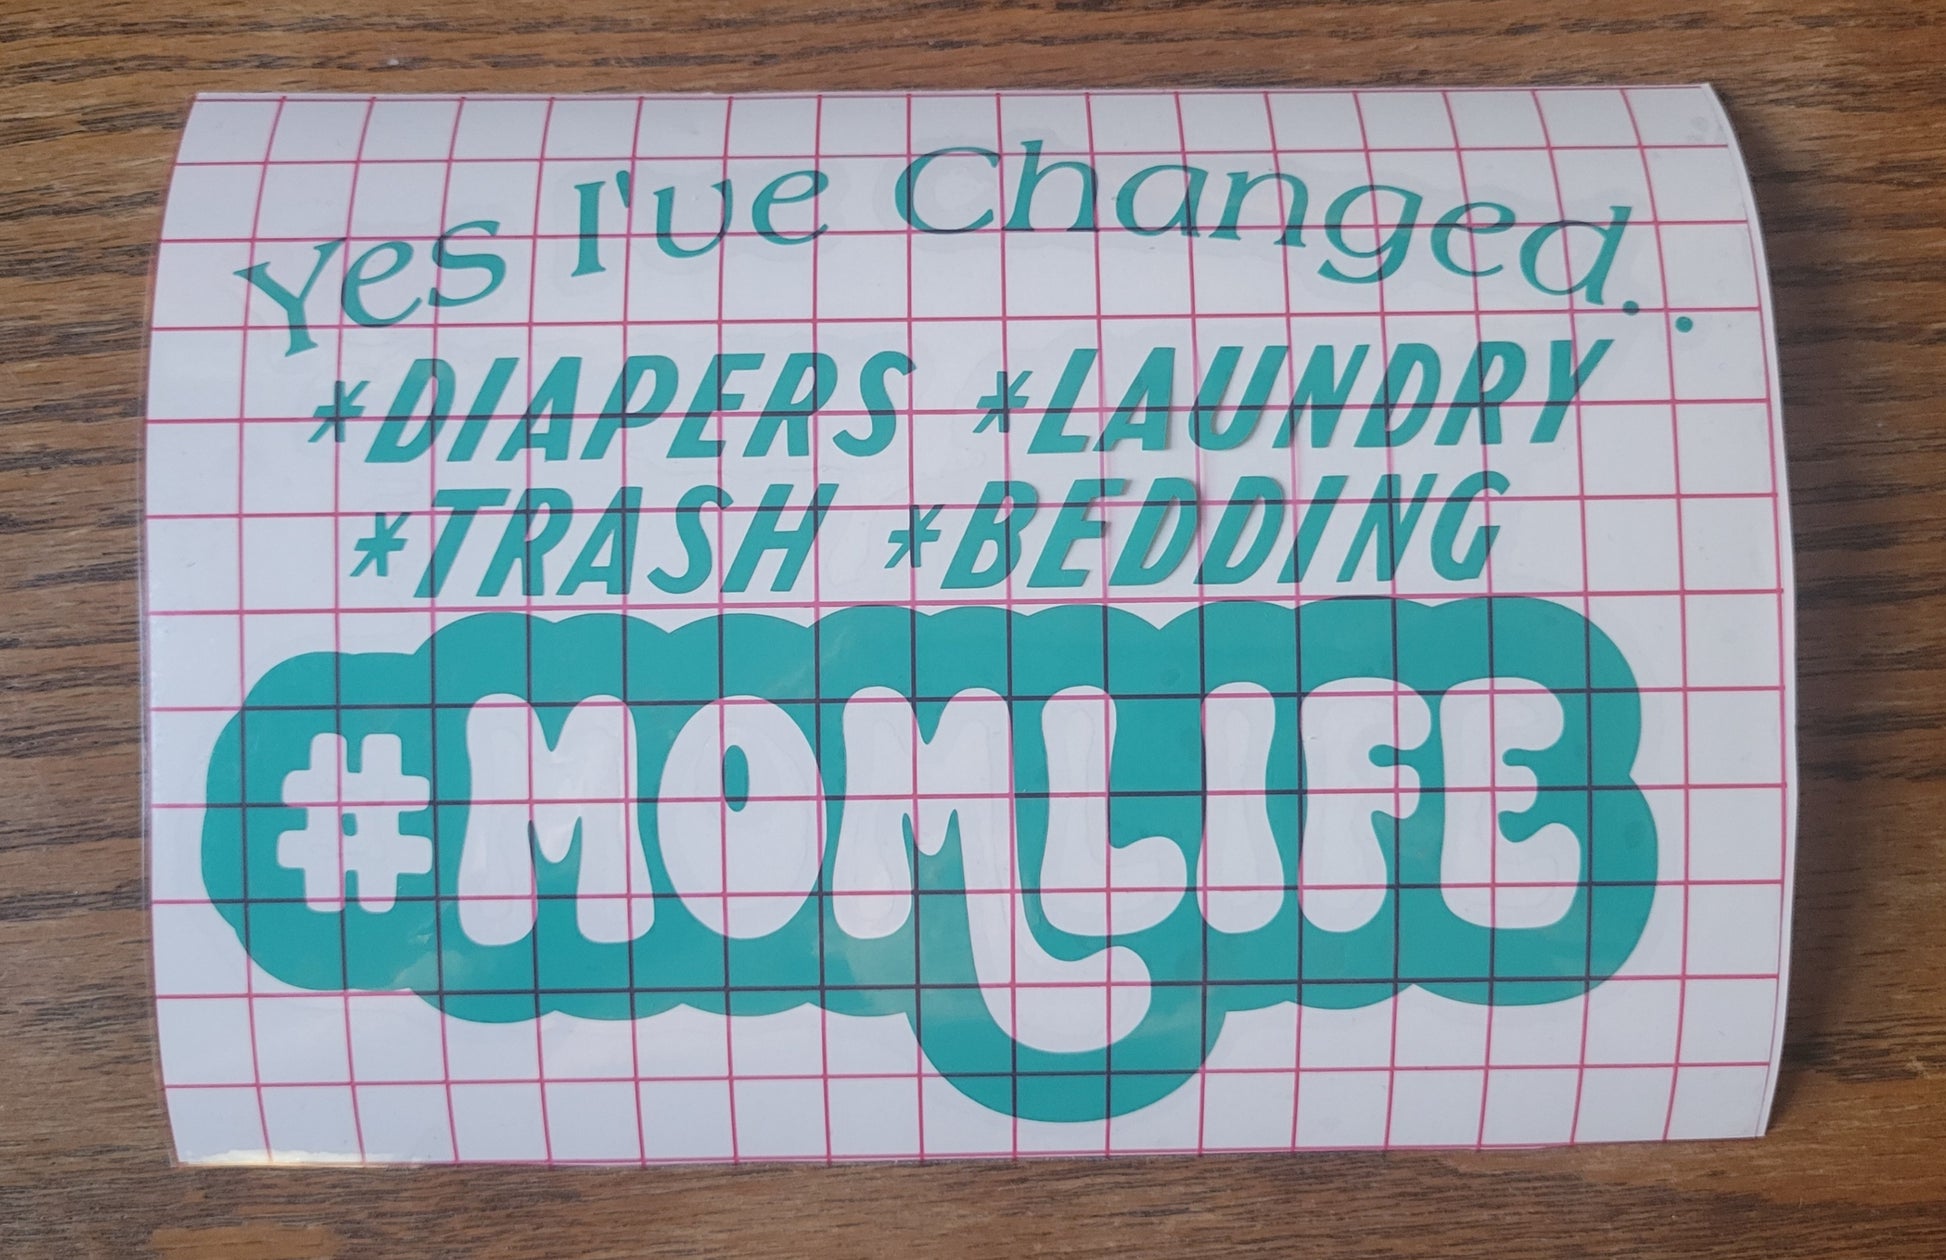 Yes I've Changed..
*DIAPERS *LAUNDRY
*TRASH *BEDDING
#MOMLIFE